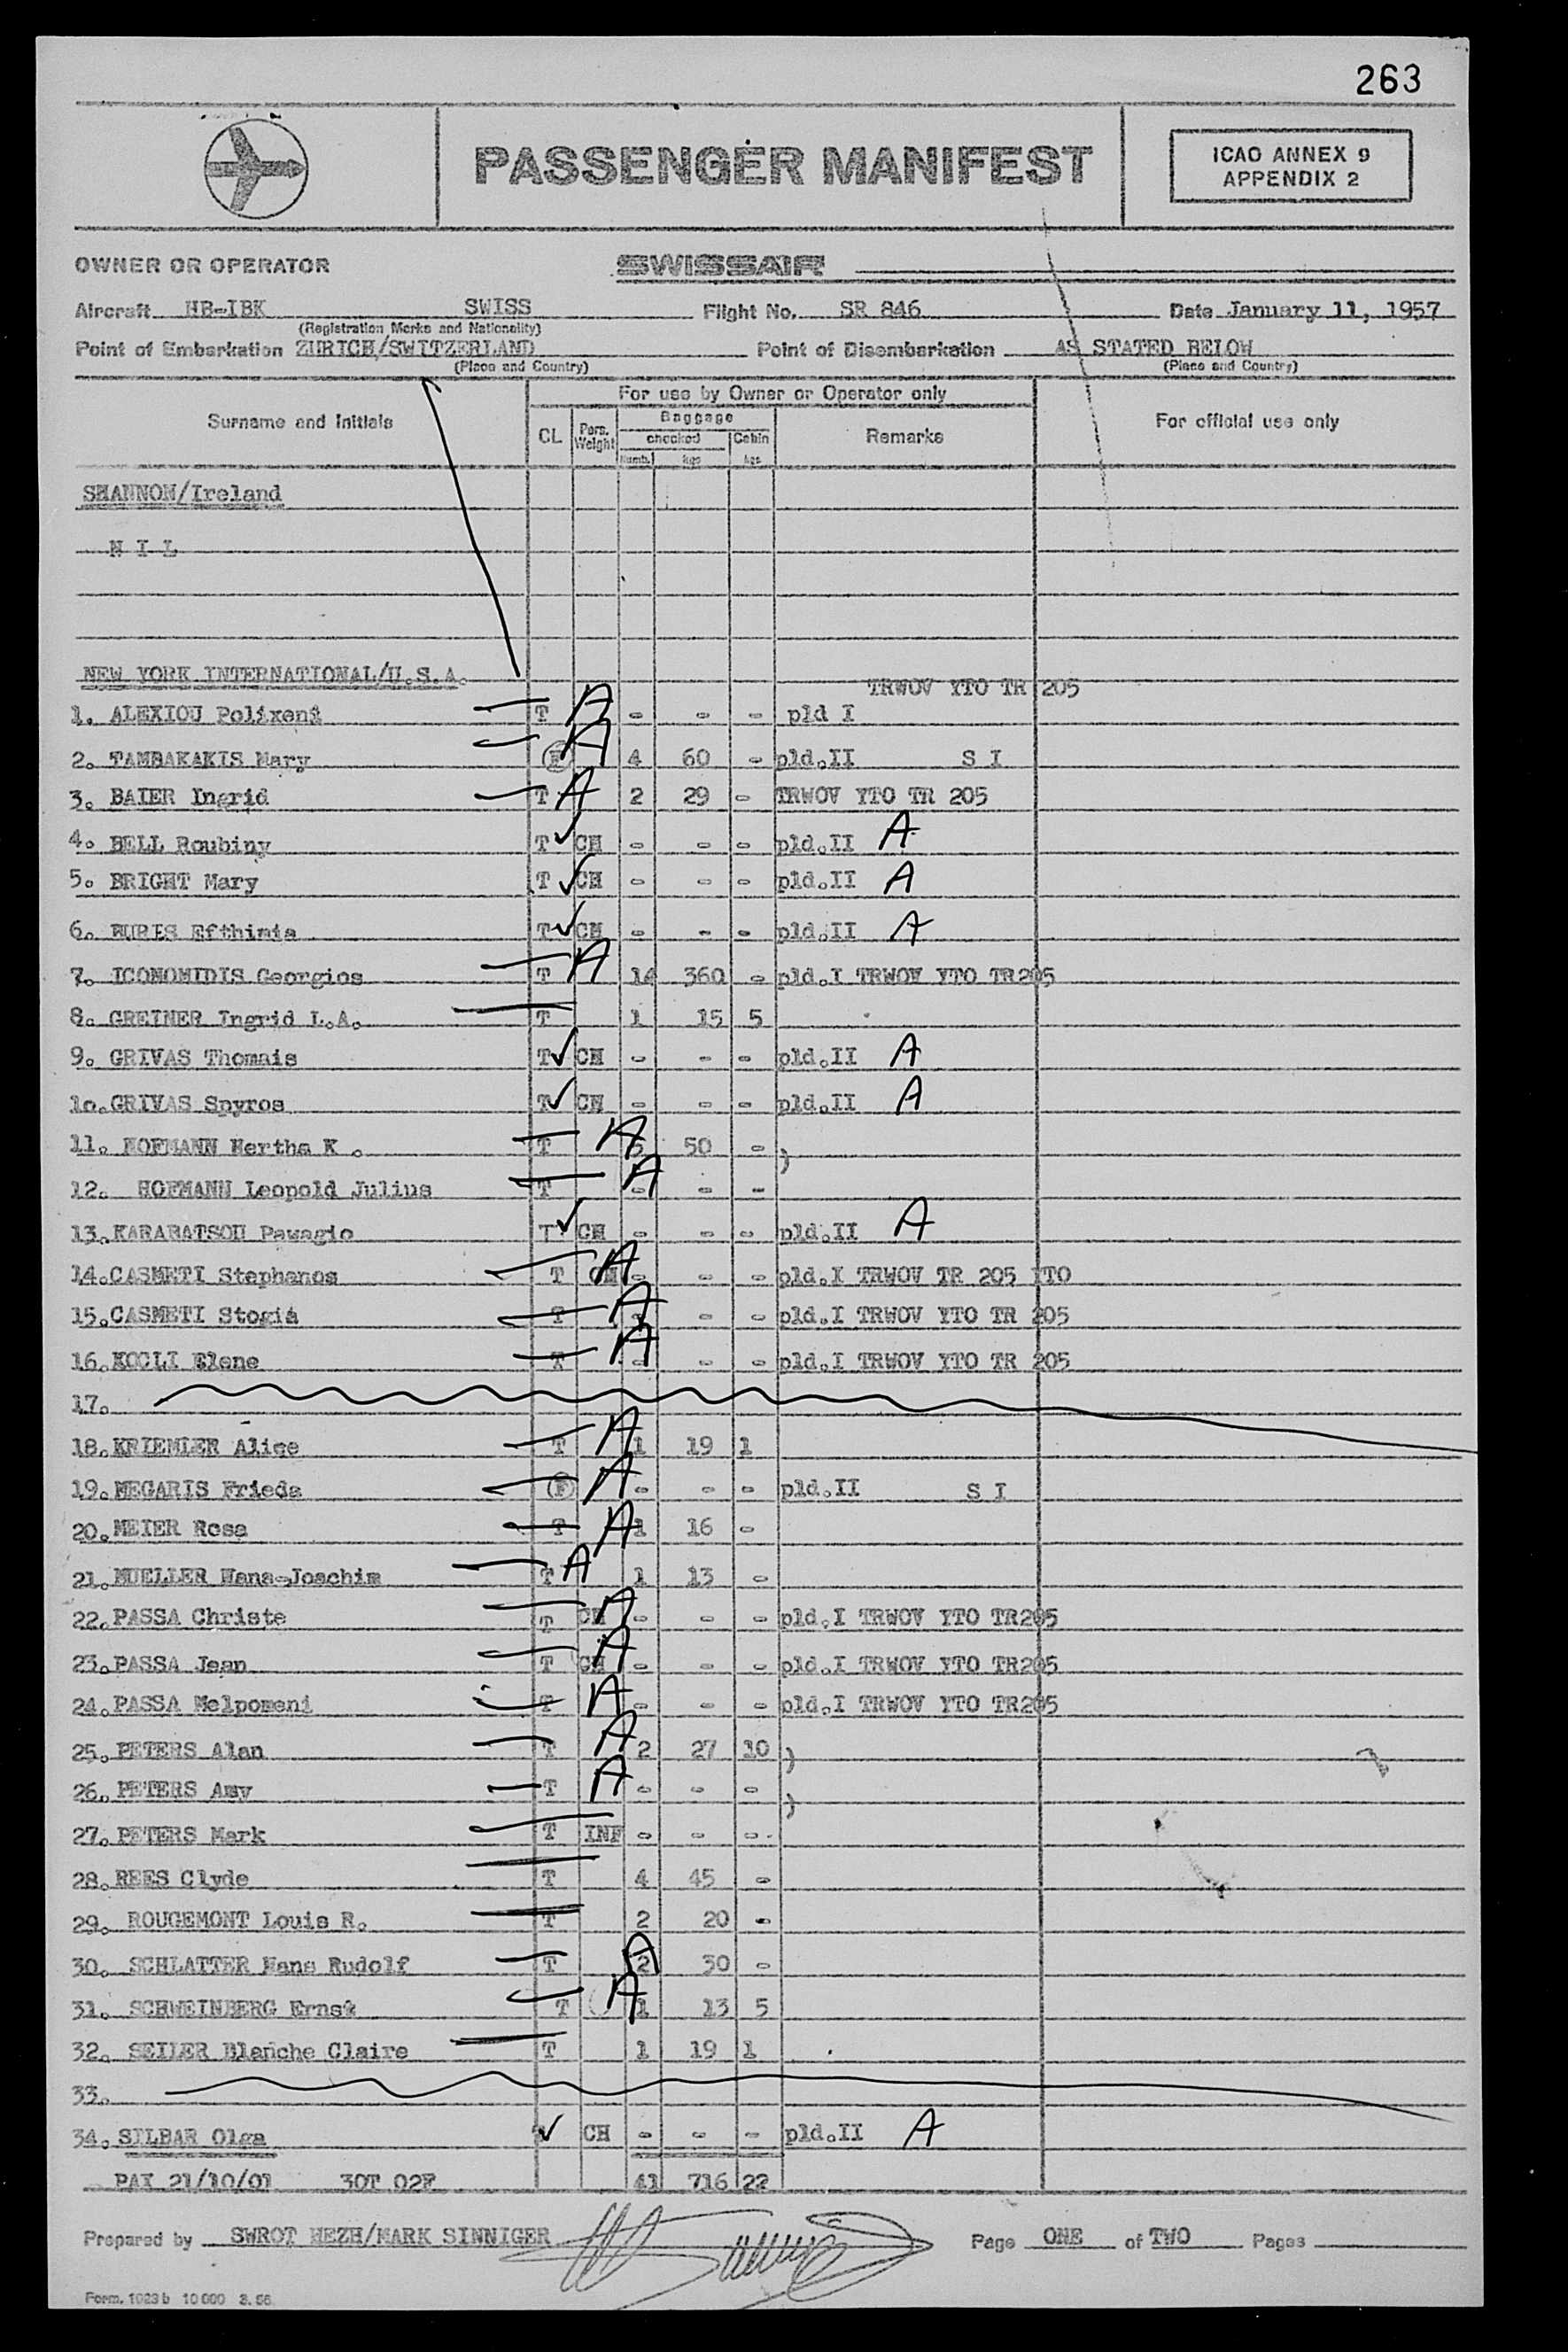 263
PASSENGER MANIFEST
ICAO ANNEX 9
APPENDIX 2
OWNER OR OPERATOR SWISSAIR
Aircraft HB-IBK SWISS Flight No. SR 846 Date January 11, 1957
(Registration Marks and Nationality)
Point of Embarkation ZURICH/SWITZERLAND Point of Disembarkation AS STATED BELOW
(Place and Country) (Place and Country)
For use by Owner or Operator only
Surname and Initials CL Pers. Weight Baggage checked Numb. kgs Cabin kgs Remarks For official use only
SHANNON/Ireland
N I L
NEW YORK INTERNATIONAL/U.S.A.
TRWOV YTO TR 205
1. ALEXIOU Polixeni T A - - - pld I
2. TAMBAKAKIS Mary F A 4 60 - pld.II S I
3. BAIER Ingrid T A 2 29 - TRWOV YTO TR 205
4. BELL Roubiny T ✓ CH - - - pld.II A
5. BRIGHT Mary T ✓ CH - - - pld.II A
6. Efthimia T ✓ CH - - - pld.II A
7. ICONOMIDIS Georgios T A 14 360 - pld.I TRWOV YTO TR205
8. GREINER Ingrid L.A. T 1 15 5
9. GRIVAS Thomais T ✓ CH - - - pld.II A
10. GRIVAS Spyros T ✓ CH - - - pld.II A
11. HOFMANN Hertha K . T A 5 50 - )
12. HOFMANN Leopold Julius T A - - -
13. KARABATSOU Pawagio T ✓ CH - - - pld.II A
14. CASMETI Stephanos T CH A - - - pld.I TRWOV TR 205 YTO
15. CASMETI Stogia T A - - pld.I TRWOV YTO TR 205
16. KOCLI Elene T A - - - pld.I TRWOV YTO TR 205
17.
18. KRIEMLER Alice T A 1 19 1
19. MEGARIS Frieda F A - - - pld.II S I
20. MEIER Rosa T A 1 16 -
21. MUELLER Hans-Joachim T A 1 13 -
22. PASSA Christe T CH A - - - pld.I TRWOV YTO TR205
23. PASSA Jean T CH A - - - pld.I TRWOV YTO TR205
24. PASSA Melpomeni T A - - - pld.I TRWOV YTO TR205
25. PETERS Alan T A 2 27 10 )
26. PETERS Amy T A - - - )
27. PETERS Mark T INF - - -
28. REES Clyde T 4 45 -
29. ROUGEMONT Louis R. T 2 20 -
30. SCHLATTER Hans Rudolf T A 2 30 -
31. SCHWEINBERG Ernst T A 1 13 5
32. SEILER Blanche Claire T 1 19 1
33.
34. SILBAR Olga ✓ CH - - - pld.II A
PAX 21/10/01 30T 02F 41 716 22
Prepared by SWROT HEZH/MARK SINNIGER Page ONE of TWO Pages
Form. 1023 b 10 000 3. 56